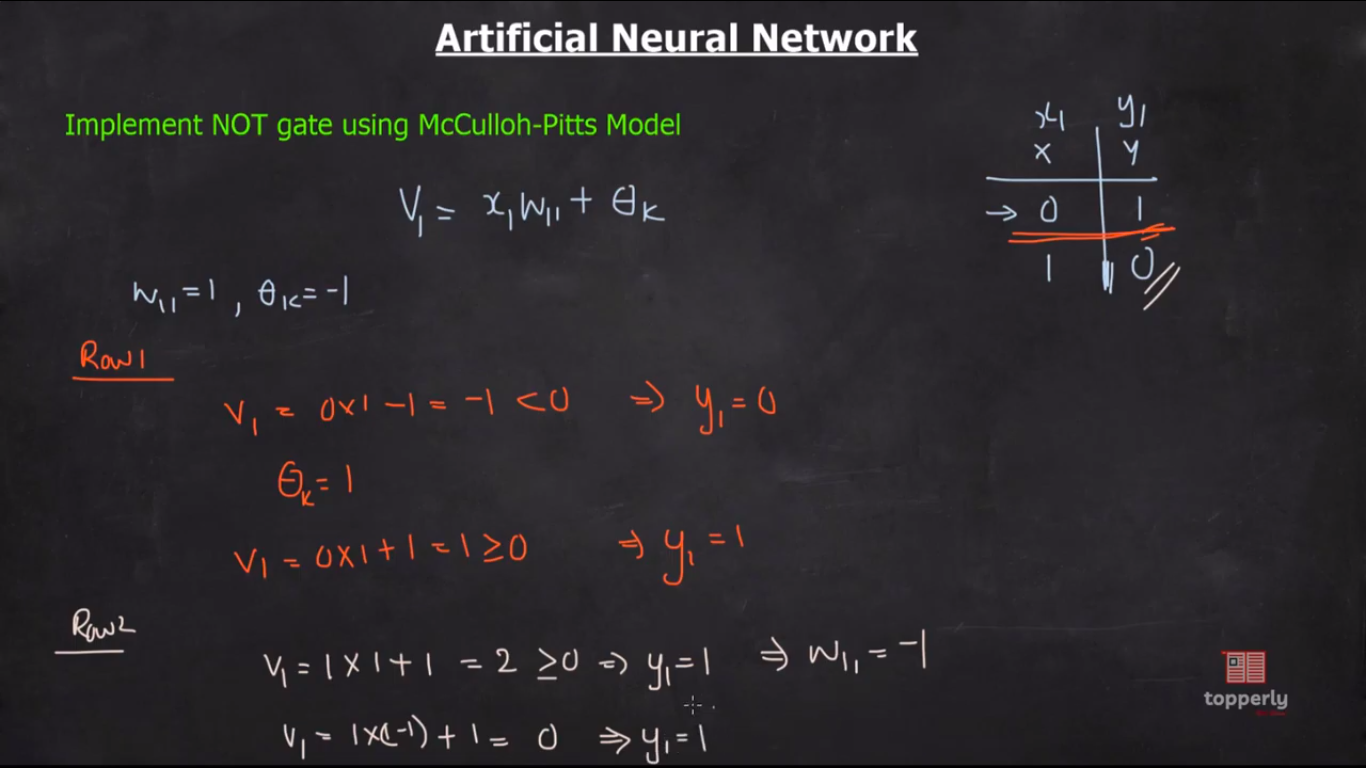 Artificial Neural Network
Implement NOT gate using McCulloh-Pitts Model
x₁ y₁
x y
→ 0 1
1 0
V₁ = x₁W₁₁ + θₖ
W₁₁=1, θₖ=-1
Row1
V₁ = 0x1-1 = -1 <0 ⇒ y₁=0
θₖ=1
V₁ = 0x1+1=1≥0 ⇒ y₁=1
Row2
V₁=1x1+1 =2 ≥0 ⇒ y₁=1 ⇒ W₁₁=-1
V₁= 1x(-1)+1= 0 ⇒ y₁=1
topperly